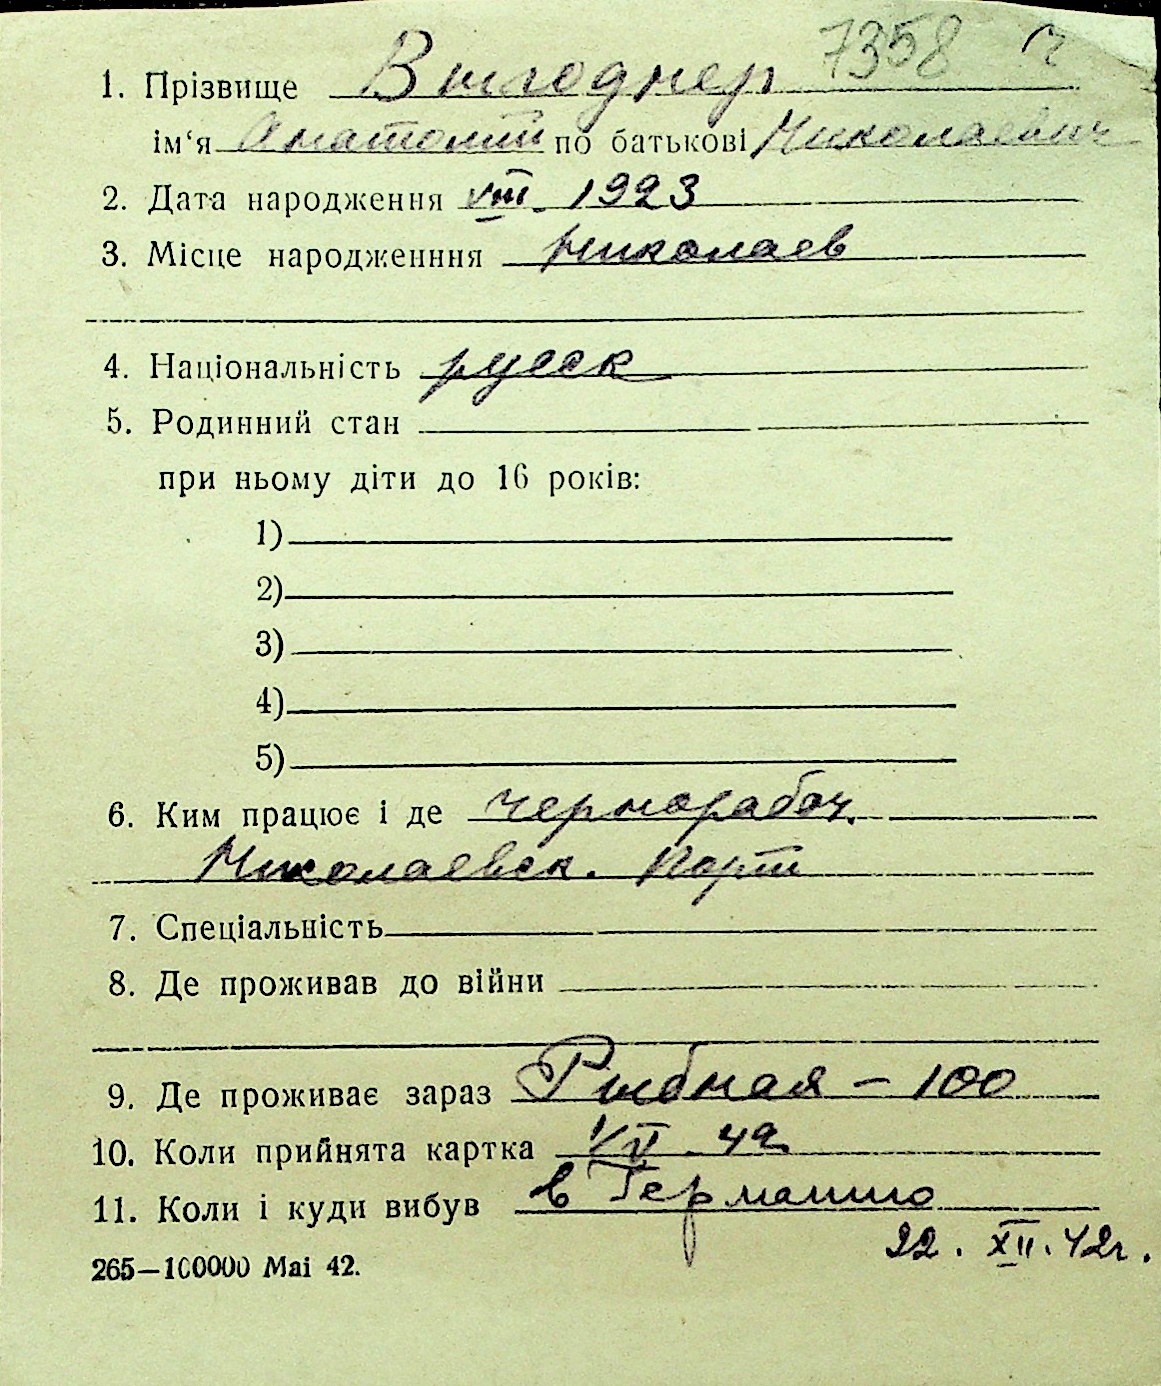 7358 ч
1. Прізвище Выгоднер
ім‘я Анатолий по батькові Николаевич
2. Дата народження VIII. 1923
3. Місце народженння Николаев
4. Національність русск
5. Родинний стан
при ньому діти до 16 років:
1)
2)
3)
4)
5)
6. Ким працює і де чернорабоч.
Николаевск. Порт
7. Спеціальність
8. Де проживав до війни
9. Де проживає зараз Рыбная – 100
10. Коли прийнята картка 1/VI - 42
11. Коли і куди вибув в Германию
22. XII. 42г.
265—100000 Mai 42.